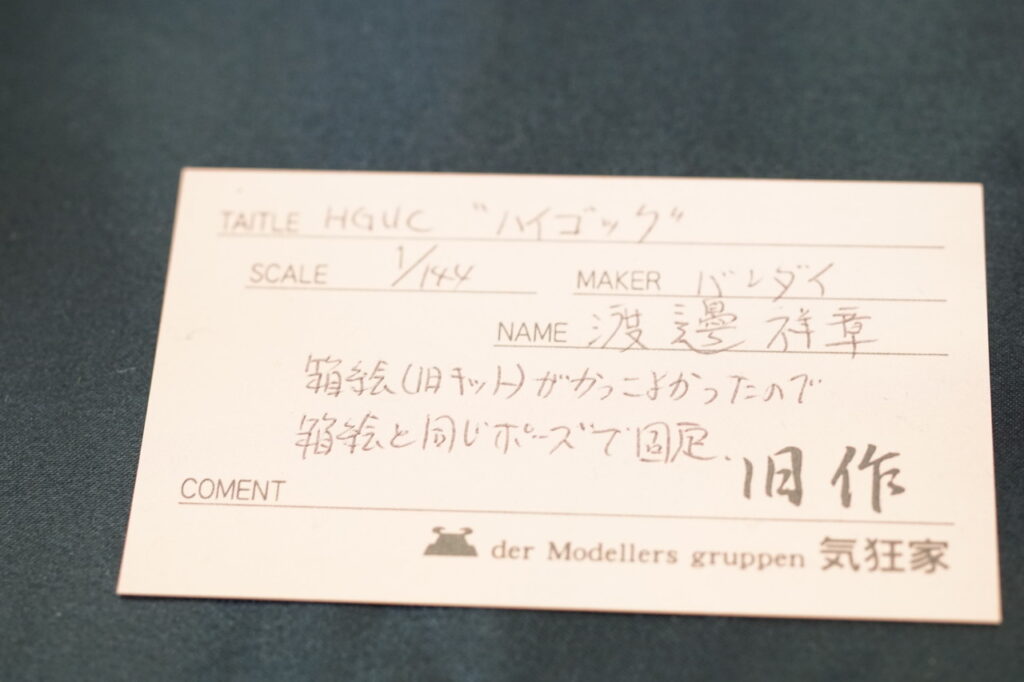 TAITLE HGUC "ハイゴッグ"
SCALE 1/144 MAKER バンダイ
NAME 渡邊祥章
箱絵(旧キット)がかっこよかったので
箱絵と同じポーズで固定、
旧作
COMENT
der Modellers gruppen 気狂家